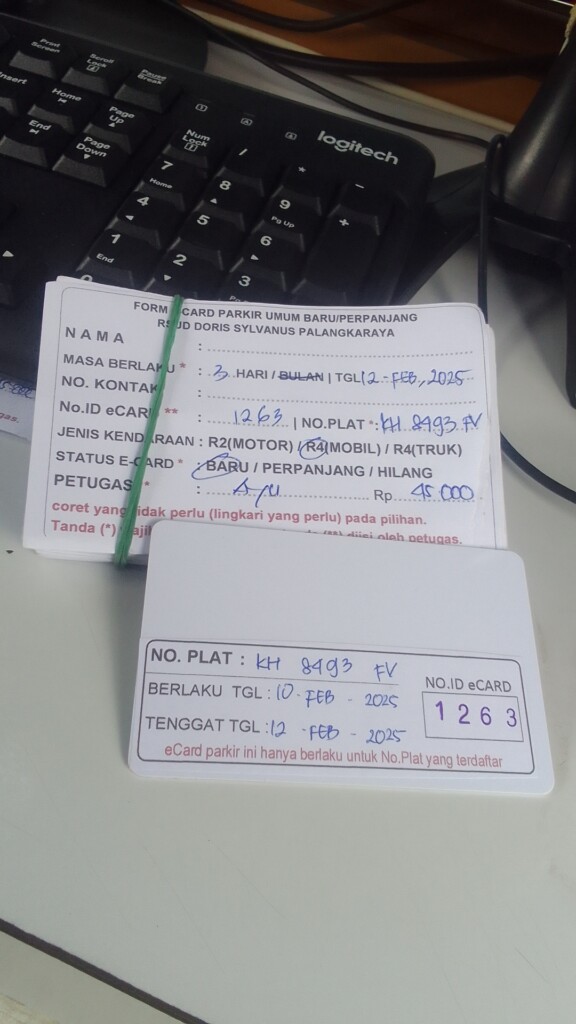 Prnt Screen
Scroll Lock
Pause Break
Insert
Home
Page Up
End
Page Down
Num Lock
logitech
/
*
-
7 Home
8
9 Pg Up
+
4
5
6
1 End
2
3
0
FORM CARD PARKIR UMUM BARU/PERPANJANG
RSUD DORIS SYLVANUS PALANGKARAYA
NAMA :
MASA BERLAKU * : 3 HARI / BULAN | TGL 12 - FEB, 2025
NO. KONTAK :
No.ID eCARD ** : 1263 | NO.PLAT *: KH 8493 FV
JENIS KENDARAAN : R2(MOTOR) / R4(MOBIL) / R4(TRUK)
STATUS E-CARD * : BARU / PERPANJANG / HILANG
PETUGAS ** : Ayu Rp 45.000
coret yang tidak perlu (lingkari yang perlu) pada pilihan.
Tanda (*) (**) diisi oleh petugas.
NO. PLAT : KH 8493 FV
BERLAKU TGL : 10 - FEB - 2025
NO.ID eCARD
1263
TENGGAT TGL : 12 - FEB - 2025
eCard parkir ini hanya berlaku untuk No.Plat yang terdaftar